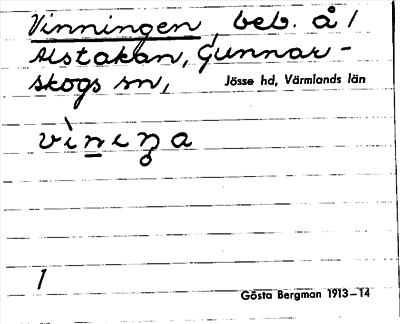 Vinningen, beb. å 1
Alstakan, Gunnar-
skogs sn,
Jösse hd, Värmlands län
vìnıŋa
1
Gösta Bergman 1913-14